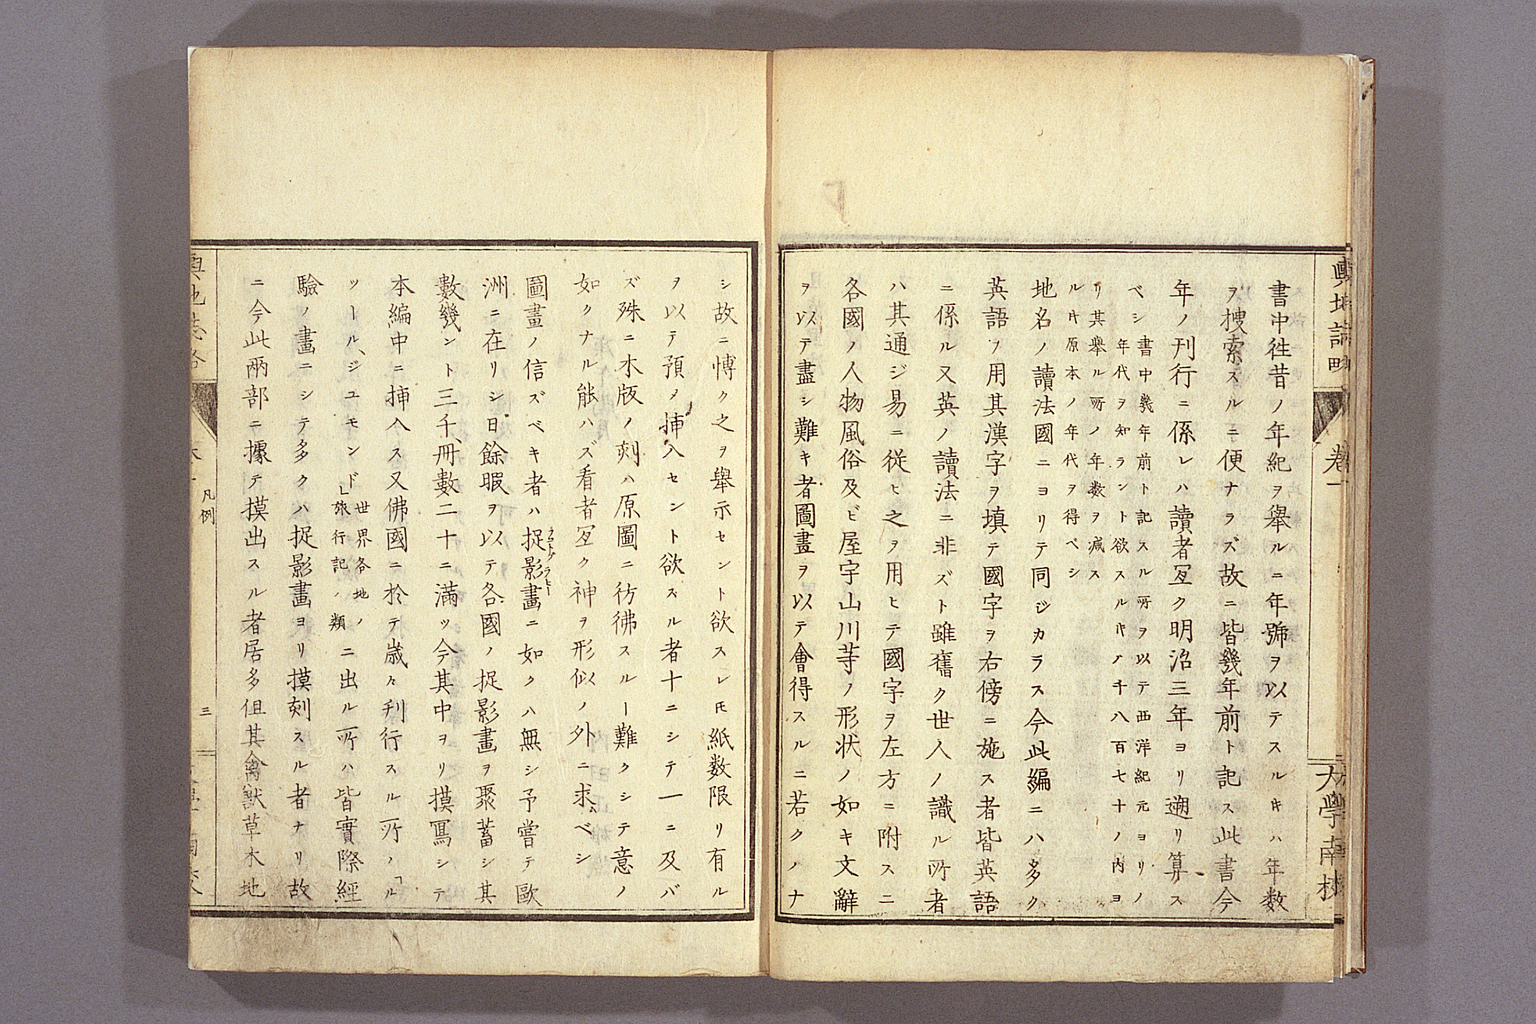 輿地誌略
卷一
大學南校
書中徃昔ノ年紀ヲ舉ルニ年號ヲ以テスルキハ年数
ヲ搜索スルニ便ナラズ故ニ皆幾年前ト記ス此書今
年ノ刊行ニ係レハ讀者冝ク明治三年ヨリ遡リ算リス
ベシ書中幾年前ト記スル所ヲ以テ西洋紀元ヨリノ
年代ヲ知ラント欲スルキハ千八百七十ノ内ヨ
リ其舉ル所ノ年数ヲ减ス
ルキ原本ノ年代ヲ得ベシ
地名ノ讀法國ニヨリテ同ジカラス今此編ニハ多ク
英語ヲ用其漢字ヲ填テ國字ヲ右傍ニ施ス者皆英語
ニ係ル又英ノ讀法ニ非ズト雖舊ク世人ノ識ル所者
ハ其通ジ易ニ從ヒ之ヲ用ヒテ國字ヲ左方ニ附スニ
各國ノ人物風俗及ビ屋宇山川等ノ形状ノ如キ文辭
ヲ以テ盡シ難キ者圖畫ヲ以テ會得スルニ若クノナ
シ故ニ博ク之ヲ舉示セント欲スレ𪜈紙数限リ有ル
ヲ以テ預メ挿入セント欲スル者十ニシテ一ニ及バ
ズ殊ニ木版ノ刻ハ原圖ニ彷彿スルー難クシテ意ノ
如クナル能ハズ看者冝ク神ヲ形似ノ外ニ求ムベシ
圖畫ノ信ズベキ者ハ捉影畫ニ如クハ無シ予嘗テ歐
洲ニ在リシ日餘暇ヲ以テ各國ノ捉影畫ヲ聚蓄シ其
數幾ント三千冊數二十ニ滿ツ今其中ヲリ摸寫シテ
本編中ニ挿入ス又佛國ニ於テ歳々刋行スル所ノ「ル
ツールジユモンド」世界各地ノ旅行記ノ類ニ出ル所ハ皆實際經
驗ノ畫ニシテ多クハ捉影畫ヨリ摸刻スル者ナリ故
ニ今此兩部ニ據テ摸出スル者居多但其禽獸草木地
輿地誌略
凡例
三